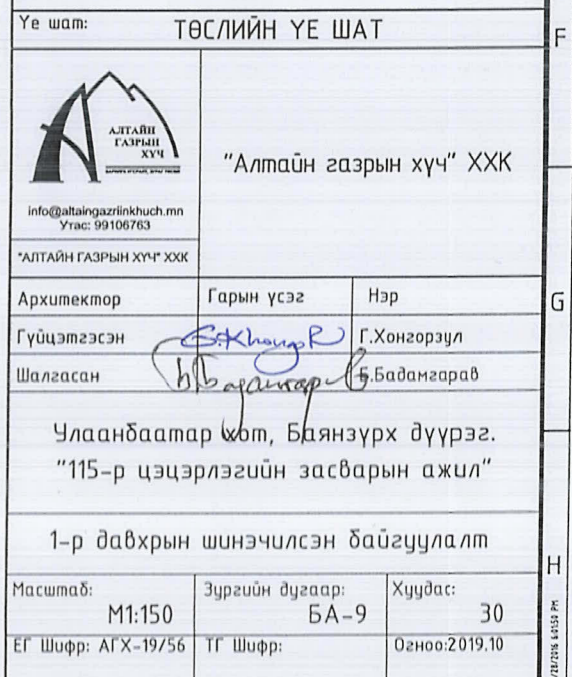 Үе шат: ТӨСЛИЙН ҮЕ ШАТ
F
АЛТАЙН
ГАЗРЫН
ХҮЧ
"Алтайн газрын хүч" ХХК
info@altaingazriinkhuch.mn
Утас: 99106763
"АЛТАЙН ГАЗРЫН ХҮЧ" ХХК
Архитектор Гарын үсэг Нэр
G
Гүйцэтгэсэн G.Khongor Г.Хонгорзул
Шалгасан Б.Бадамгарав Б.Бадамгарав
Улаанбаатар хот, Баянзүрх дүүрэг.
"115-р цэцэрлэгийн засварын ажил"
1-р давхрын шинэчилсэн байгуулалт
H
Масштаб: Зургийн дугаар: Хуудас:
М1:150 БА-9 30
ЕГ Шифр: АГХ-19/56 ТГ Шифр: Огноо:2019.10
/28/2016 6:01:50 PM